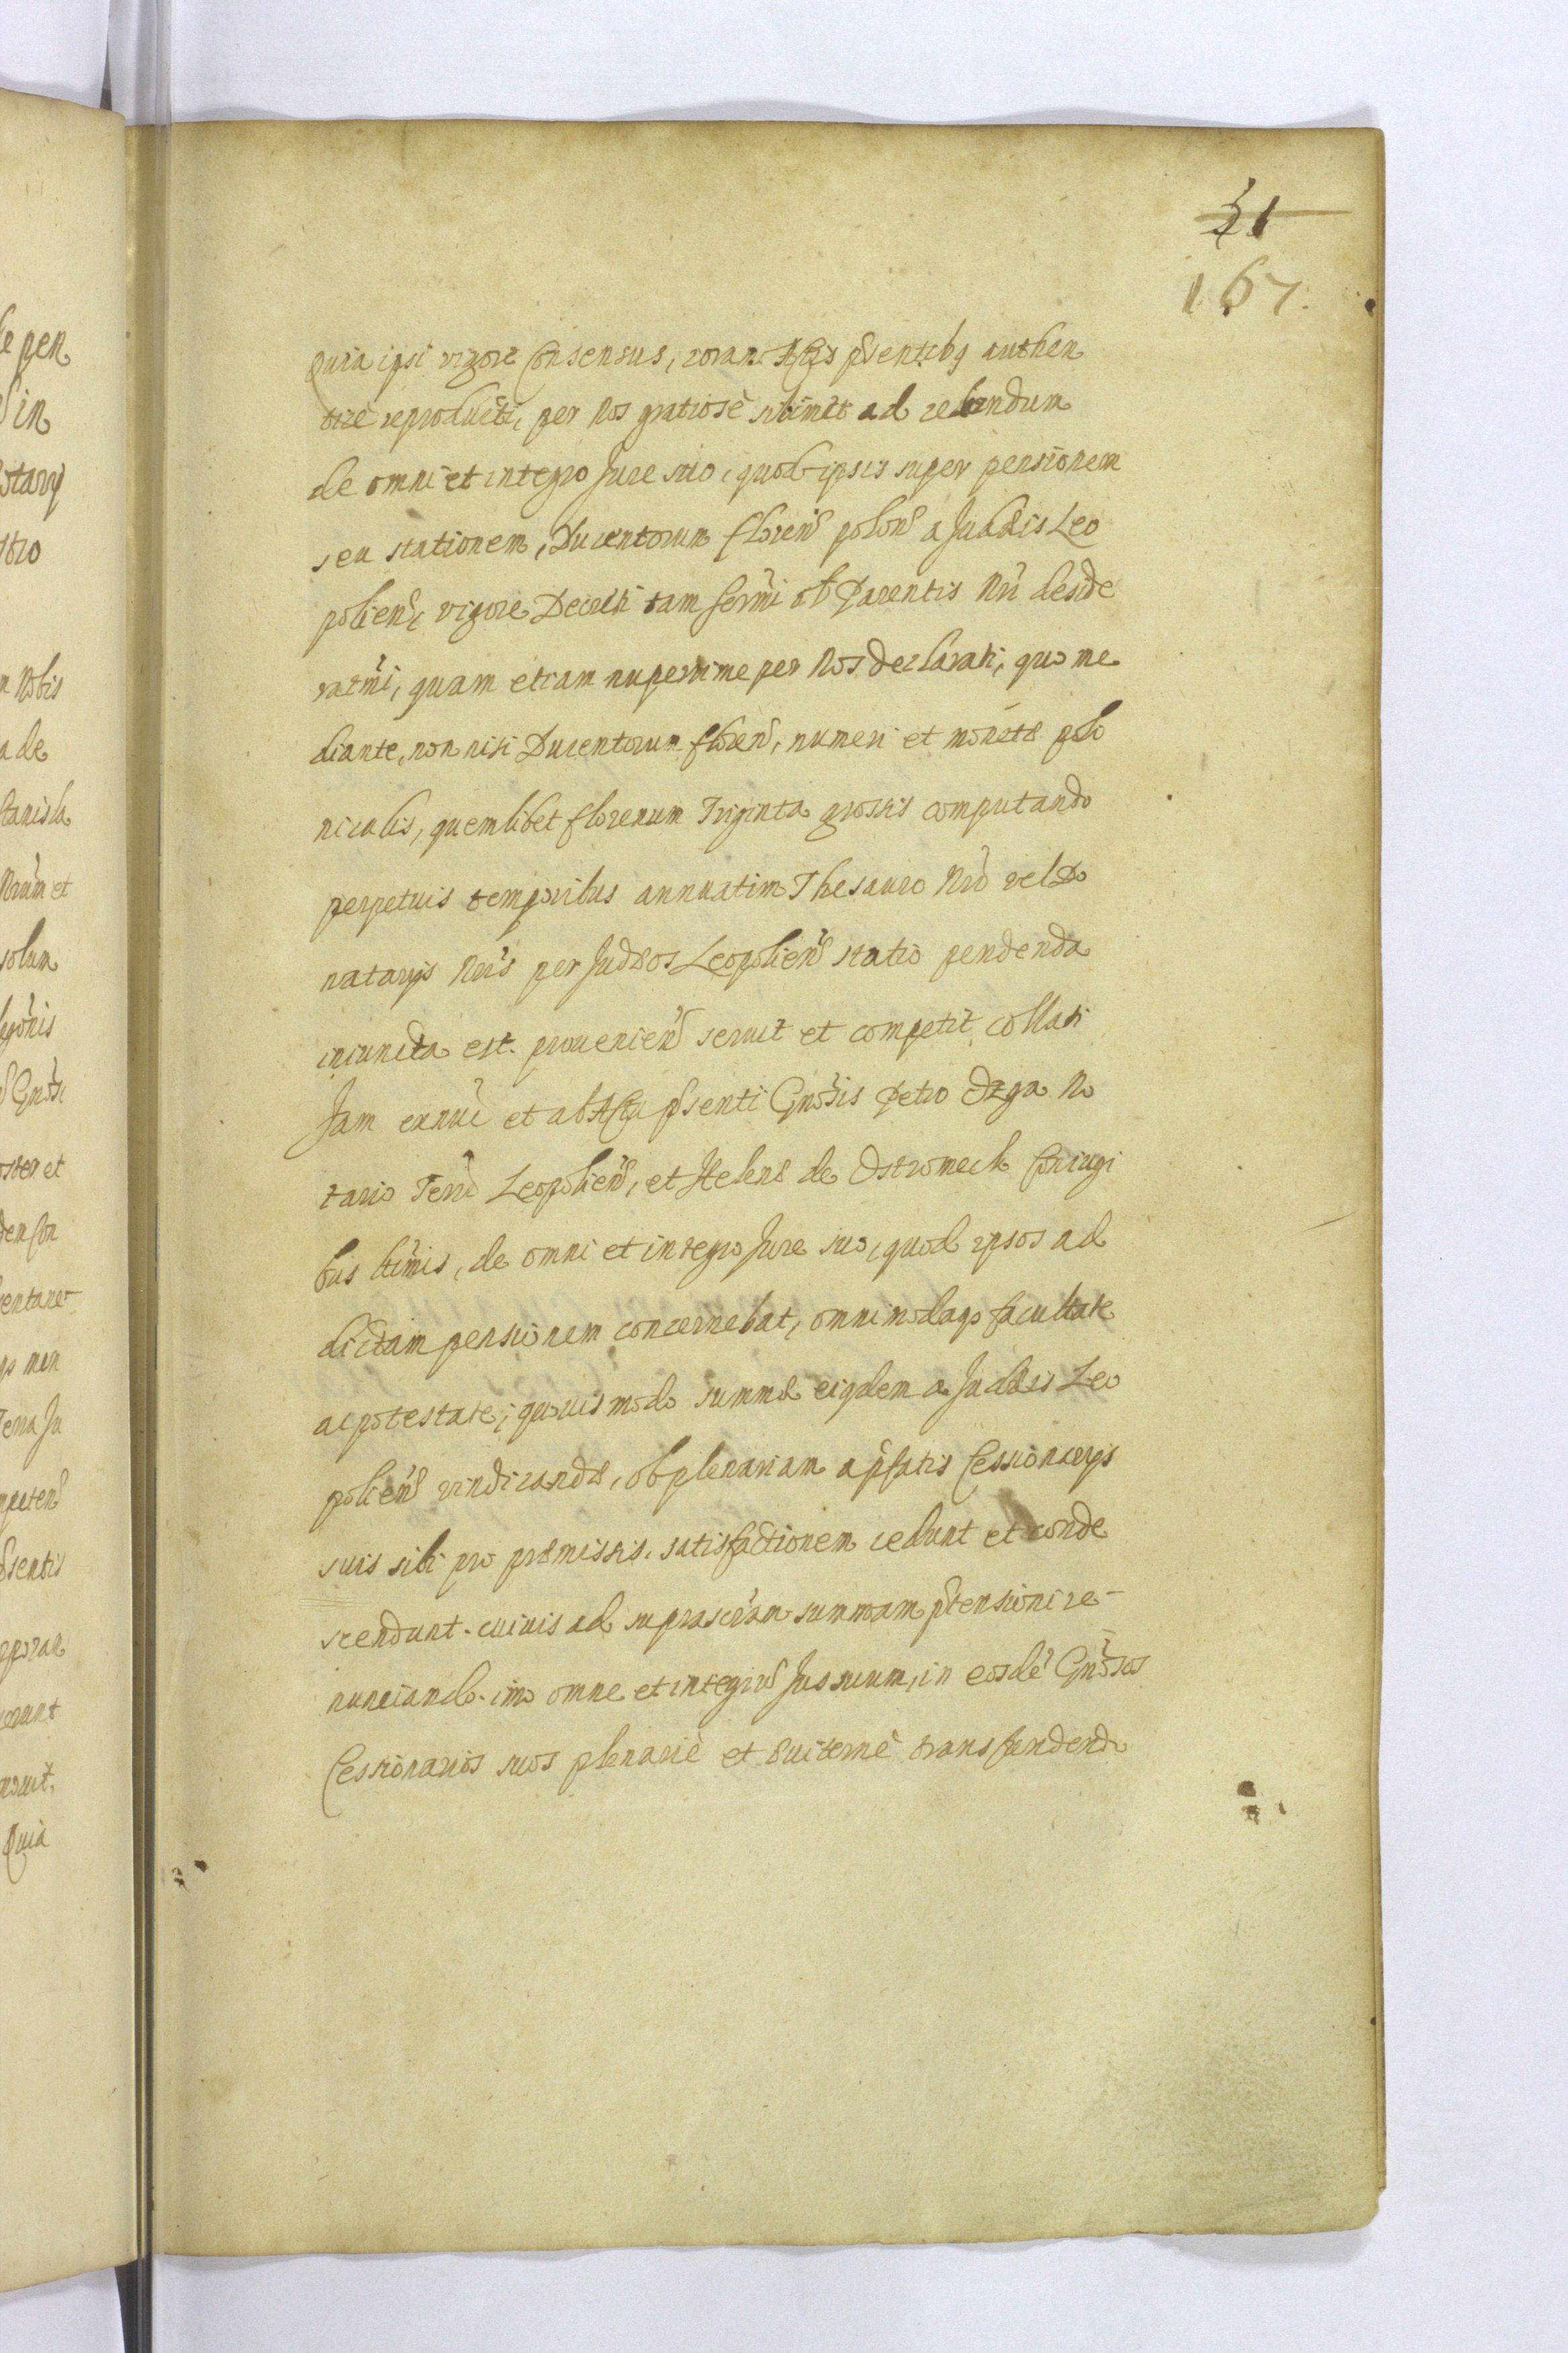 21
167.
Quia ipsi vigore Consensus, coram Actis pñtibq authen
ticè reproducti, per Nos gratiosè
ad cedendum
de omni et integro Jure suo, quod ipsis super pensionem
seu stationem, Ducentorum floren polon a Judæis Leo
polien, vigore Decreti tam Sermi olt Parentis Nri deside
ratmi, quam etiam nuperrime per Nos declarati, quo me
diante, non nisi Ducentorum floren, numeri et monetæ polo
nicalis, quemlibet florenum Triginta grossis computando
perpetuis temporibus annuatim Thesauro Nro vel Do
natarijs Nris per Judæos Leopolien statio pendenda
iniuncta est. prouenien seruit et competit, collati
Jam exnuc et ab Actu pñsenti Gnosis Petro Ozga No
tario Terrō Leopolien, et Helenæ de Ostromeck Coniugi
bus ltimis, de omni et integro Jure suo, quod ipsos ad
dictam pensionem concernebat, omnimodaqȝ facultate
ac potestate, quouis modo summæ eiqdem a Judæis Leo
polien vindicandæ, ob plenariam a pfatis Cessionarijs
suis sibi pro præmissis, satisfactionem cedunt et conde
scendunt. cuiuis ad suprascram summam ptensioni re-
nunciando. imo omne et integrũ Jus suum, in eosdē Gnosos
Cessionarios suos plenariè et æuiternè transfundendo